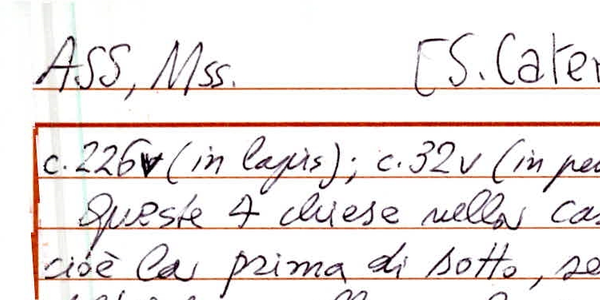 ASS, Mss. [S. Cater
c. 226v (in lapis); c. 32v (in pe
Queste 4 chiese nella cas
cioè la prima di sotto, se